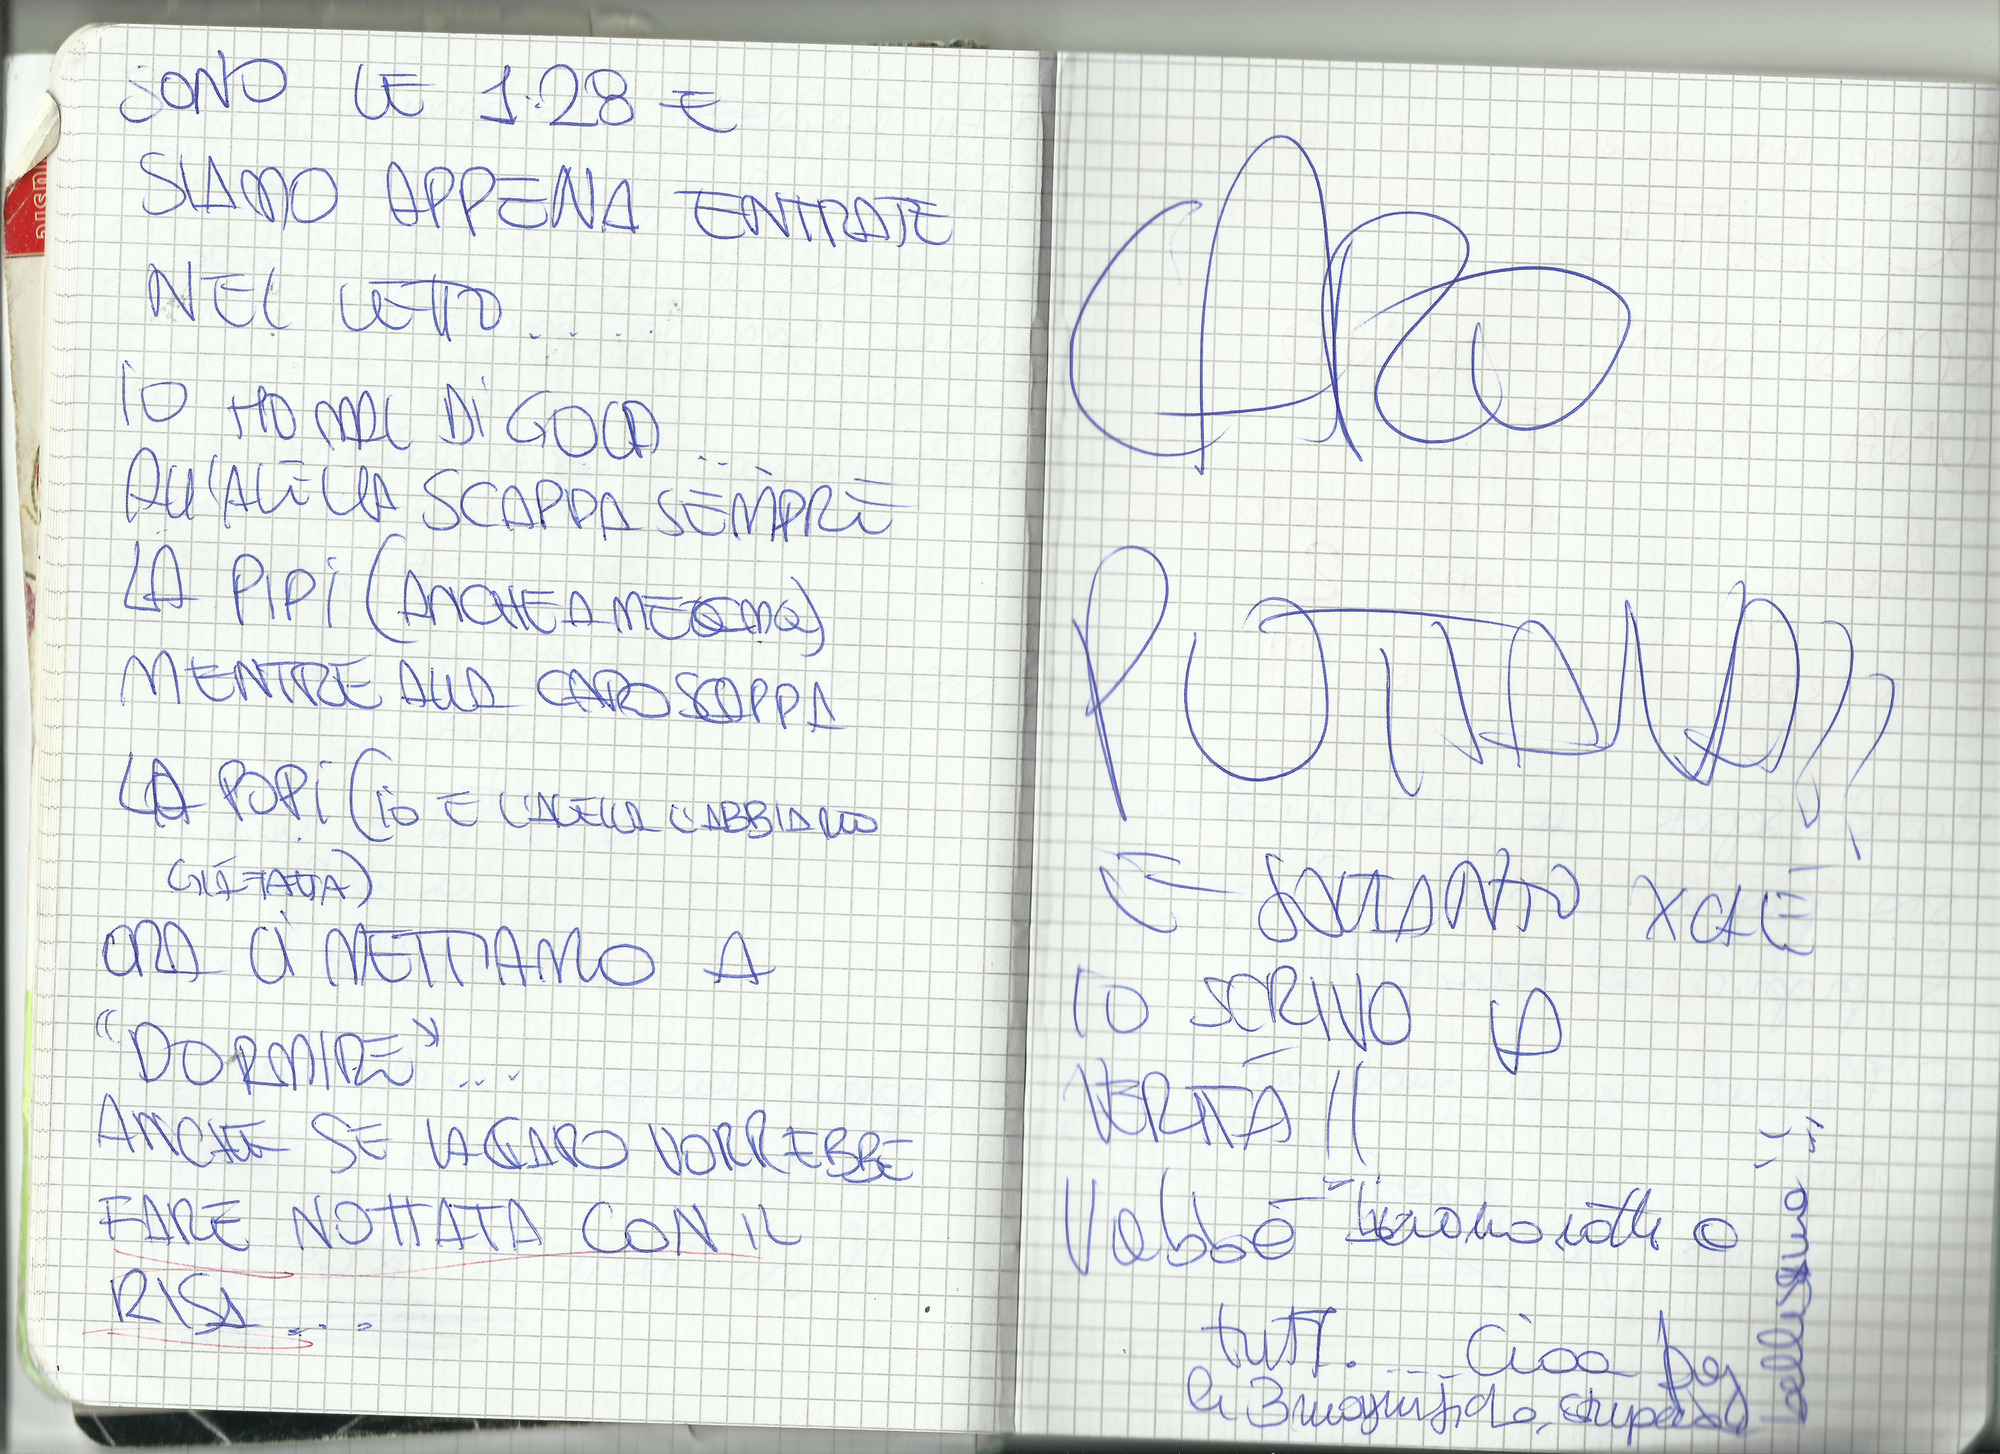 SONO LE 1.28 E
SIAMO APPENA ENTRATE
NEL LETTO.....
IO HO MAL DI GOLA ...
ALL'ALELLA SCAPPA SEMPRE
LA PIPÌ (ANCHE A ME)
MENTRE ALLA CARO SCAPPA
LA POPÒ (IO E L'ALELLA L'ABBIAMO
GIÀ FATTA)
ORA CI METTIAMO A
"DORMIRE" ...
ANCHE SE LA CARO VORREBBE
FARE NOTTATA CON IL
RISI ...
CARO
PUTTANA??
È SOLTANTO XCHÈ
IO SCRIVO LA
VERITÀ!!
Vabbè buona notte a
tutti.... Ciao
le 3 magnifiche, stupende
bellissime